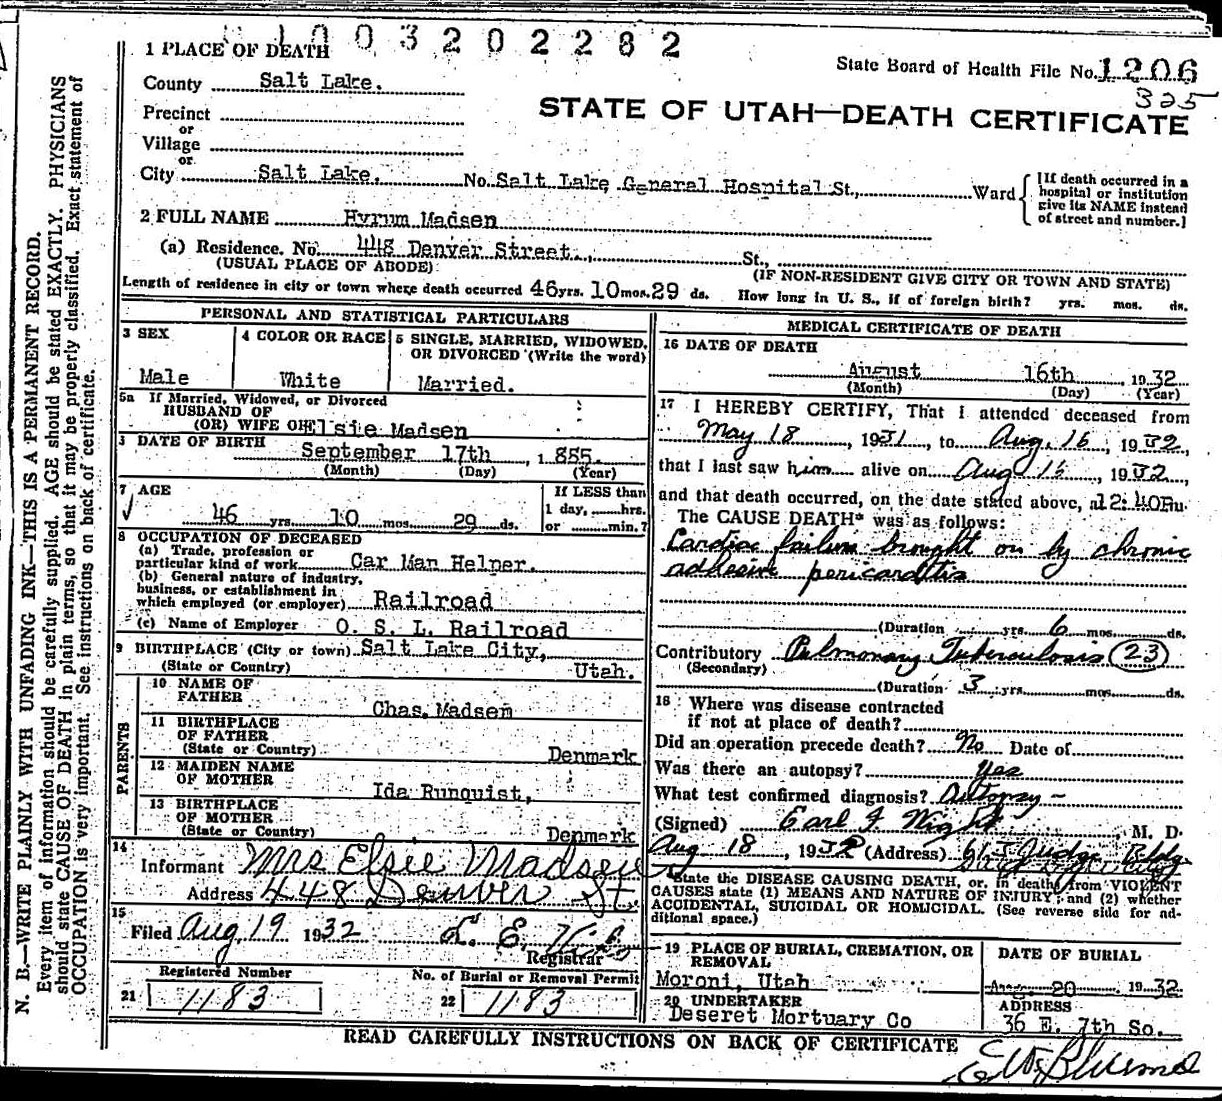 1003202282
1 PLACE OF DEATH
State Board of Health File No. 1206
325
County Salt Lake.
STATE OF UTAH—DEATH CERTIFICATE
Precinct
or
Village
or
City Salt Lake. No. Salt Lake General Hospital St., Ward
[If death occurred in a hospital or institution give its NAME instead of street and number.]
2 FULL NAME Hyrum Madsen
(a) Residence. No. 448 Denver Street., St.,
(USUAL PLACE OF ABODE) (IF NON-RESIDENT GIVE CITY OR TOWN AND STATE)
Length of residence in city or town where death occurred 46 yrs. 10 mos. 29 ds. How long in U. S., if of foreign birth? yrs. mos. ds.
PERSONAL AND STATISTICAL PARTICULARS
3 SEX
Male
4 COLOR OR RACE
White
5 SINGLE, MARRIED, WIDOWED, OR DIVORCED (Write the word)
Married.
5a If Married, Widowed, or Divorced
HUSBAND OF
(OR) WIFE OF Elsie Madsen
DATE OF BIRTH
September 17th, 1855.
(Month) (Day) (Year)
7 AGE
46 yrs. 10 mos. 29 ds.
If LESS than
1 day, hrs.
or min.?
8 OCCUPATION OF DECEASED
(a) Trade, profession or
particular kind of work Car Man Helper.
(b) General nature of industry,
business, or establishment in
which employed (or employer) Railroad
(c) Name of Employer O. S. L. Railroad
9 BIRTHPLACE (City or town) Salt Lake City,
(State or Country) Utah.
PARENTS
10 NAME OF
FATHER Chas. Madsen
11 BIRTHPLACE
OF FATHER
(State or Country) Denmark
12 MAIDEN NAME
OF MOTHER Ida Runquist,
13 BIRTHPLACE
OF MOTHER
(State or Country) Denmark
14
Informant Mrs Elsie Madsen
Address 448 Denver St.
15
Filed Aug 19 1932 L. E.
Registrar
Registered Number
21 1183
No. of Burial or Removal Permit
22 1183
MEDICAL CERTIFICATE OF DEATH
16 DATE OF DEATH
August 16th, 1932
(Month) (Day) (Year)
17 I HEREBY CERTIFY, That I attended deceased from
May 18, 1931, to Aug. 16, 1932,
that I last saw him alive on Aug 16, 1932,
and that death occurred, on the date stated above, at 12:40P.m.
The CAUSE DEATH* was as follows:
Cardiac failure brought on by chronic
adhesive pericarditis
(Duration yrs. 6 mos. ds.
Contributory Pulmonary Tuberculosis (23)
(Secondary)
(Duration 3 yrs. mos. ds.
18 Where was disease contracted
if not at place of death?
Did an operation precede death? No Date of
Was there an autopsy? Yes
What test confirmed diagnosis? Autopsy -
(Signed) Earl F Wight, M. D.
Aug 18, 1932 (Address) 613 Judge Bldg
State the DISEASE CAUSING DEATH, or, in deaths from VIOLENT
CAUSES state (1) MEANS AND NATURE OF INJURY; and (2) whether
ACCIDENTAL, SUICIDAL OR HOMICIDAL. (See reverse side for ad-
ditional space.)
19 PLACE OF BURIAL, CREMATION, OR
REMOVAL
Moroni, Utah
DATE OF BURIAL
Aug. 20 1932.
20 UNDERTAKER
Deseret Mortuary Co
ADDRESS
36 E. 7th So.
READ CAREFULLY INSTRUCTIONS ON BACK OF CERTIFICATE
N. B.—WRITE PLAINLY WITH UNFADING INK—THIS IS A PERMANENT RECORD.
Every item of information should be carefully supplied. AGE should be stated EXACTLY. PHYSICIANS
should state CAUSE OF DEATH in plain terms, so that it may be properly classified. Exact statement of
OCCUPATION is very important. See instructions on back of certificate.